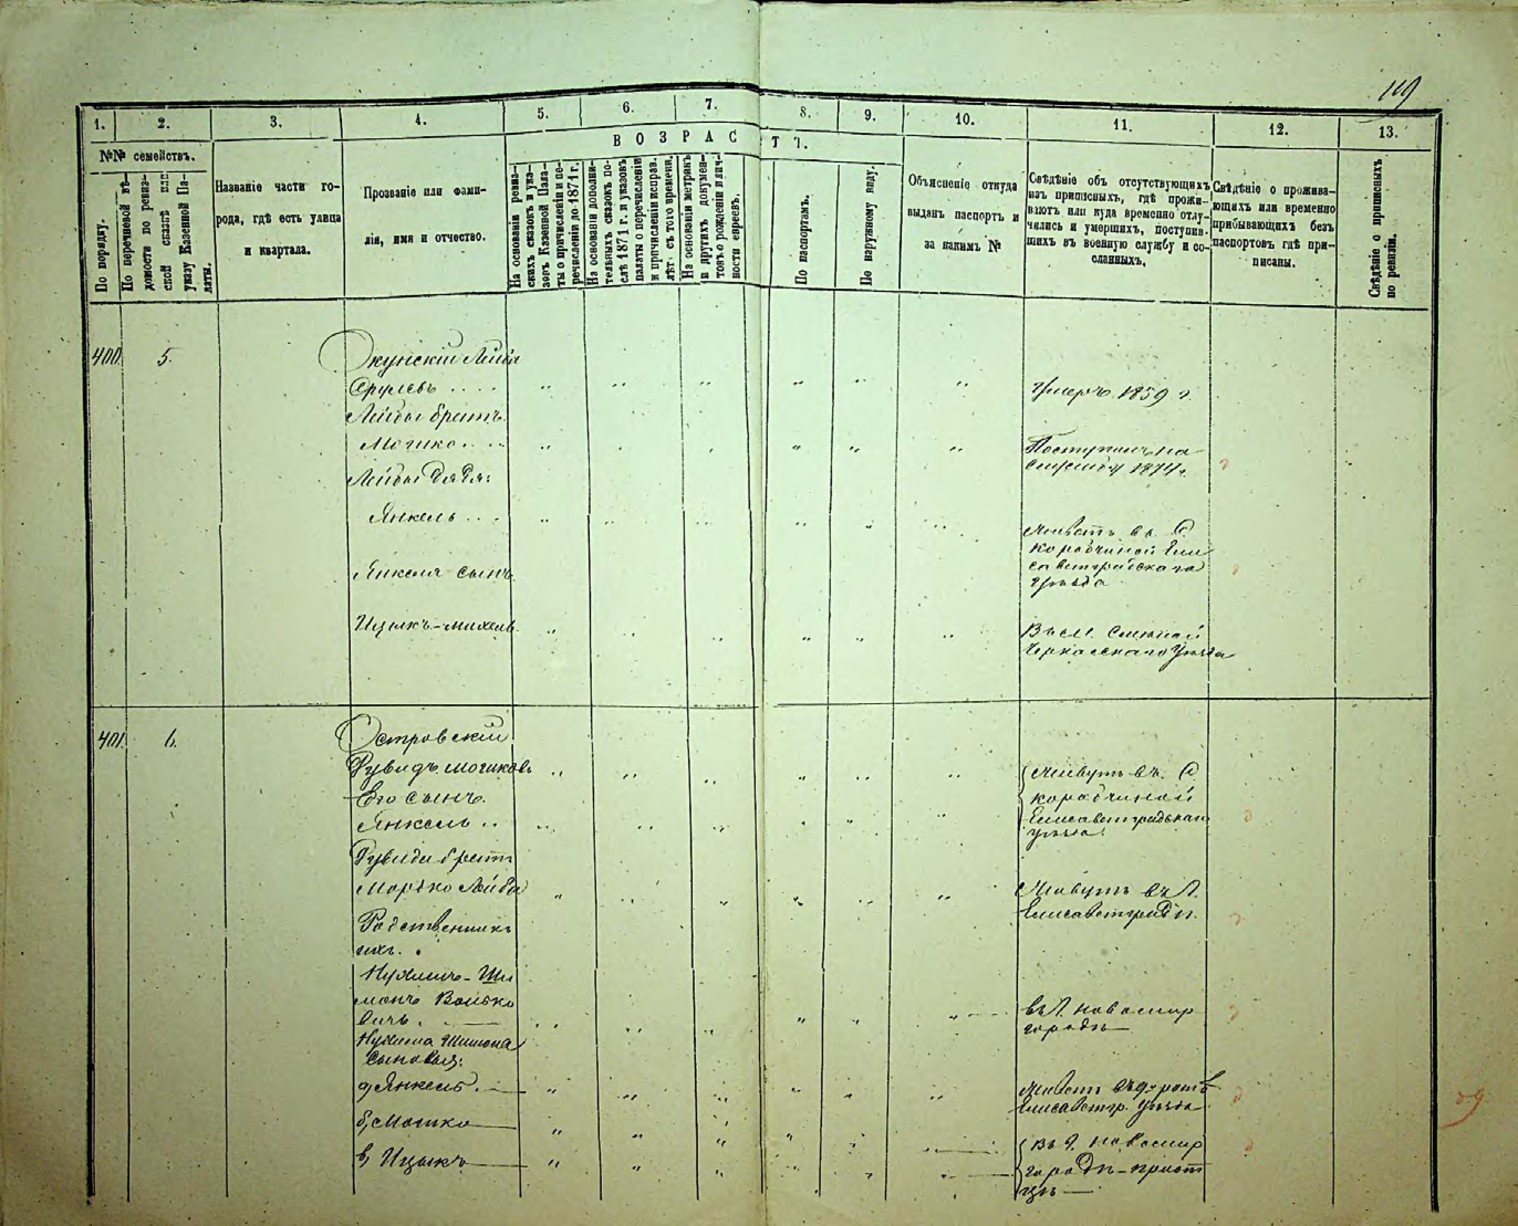 109
1.
2.
3.
4.
5.
6.
7.
8.
9.
10.
11.
12.
13.
№№ семействъ.
ВОЗРАСТЪ.
По порядку.
По перечневой вѣ-
домости по ревиз-
ской сказкѣ или
указу Казенной Па-
латы.
Названіе части го-
рода, гдѣ есть улица
и квартала.
Прозваніе или фами-
лія, имя и отчество.
На основаніи ревиз-
скихъ сказокъ и ука-
зовъ Казенной Пала-
ты о причисленіи и пе-
речисленіи до 1871 г.
На основаніи дополни-
тельныхъ сказокъ по-
слѣ 1871 г. и указовъ
палаты о перечисленіи
и причисленіи исправ.
лѣт. съ того времени.
На основаніи метрикъ
и другихъ докумен-
товъ о рожденіи и лич-
ности евреевъ.
По паспортамъ.
По наружному виду.
Объясненіе откуда
выданъ паспортъ и
за какимъ №
Свѣдѣніе объ отсутствующихъ
изъ приписныхъ, гдѣ прожи-
ваютъ или куда временно отлу-
чились и умершихъ, поступив-
шихъ въ военную службу и со-
сланныхъ.
Свѣдѣніе о прожива-
ющихъ или временно
прибывающихъ безъ
паспортовъ гдѣ при-
писаны.
Свѣдѣніе о приписныхъ
по ревизіи.
400
5.
Окунскій Лейба
Срулевъ
Умеръ 1859 г.
Лейбы братъ
Мошко
Поступилъ на
службу 1874 г.
Лейбы дядя:
Янкель
Живетъ въ С.
Коробчиной Ели
саветградскаго
уѣзда
Янкеля сынъ
Ицыкъ-Михель
Въ м. Смѣлой
Черкасскаго Уѣзда
401.
6.
Островскій
Рувидъ Мошковъ
Его сынъ.
Янкель
Живутъ въ С.
Коробчиной
Елисаветградскаго
уѣзда.
Рувида братъ
Мордко Лейба
Живутъ въ Г.
Елисаветградѣ.
Родственникъ
ихъ.
Нухимъ-Ши
монъ Волько
вичъ.
въ Г. Новомир
городѣ
Нухима Шимона
сыновья:
а, Янкель.
Живетъ въ
Елисаветгр. уѣзда
б, Мошко
в, Ицыкъ
Въ Г. Новомир
городѣ
59